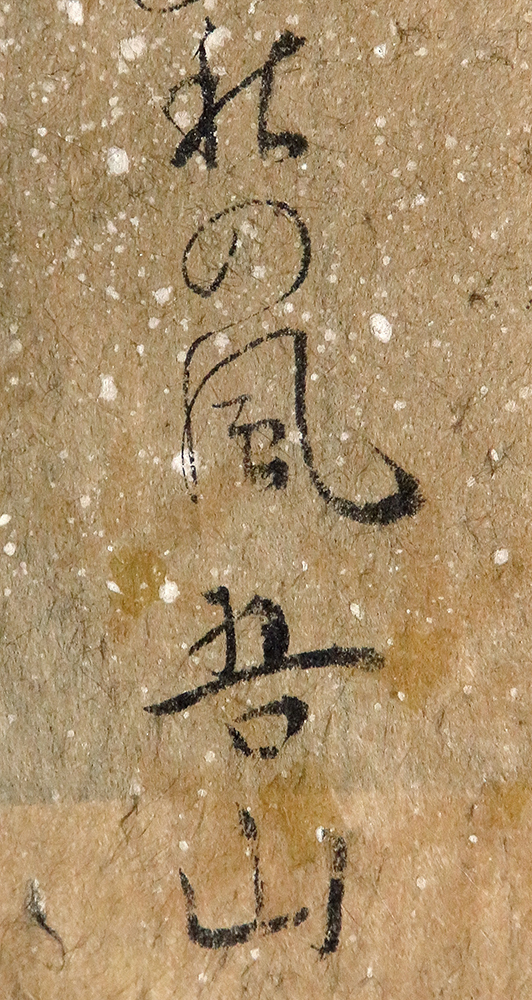 秋の風 吾山